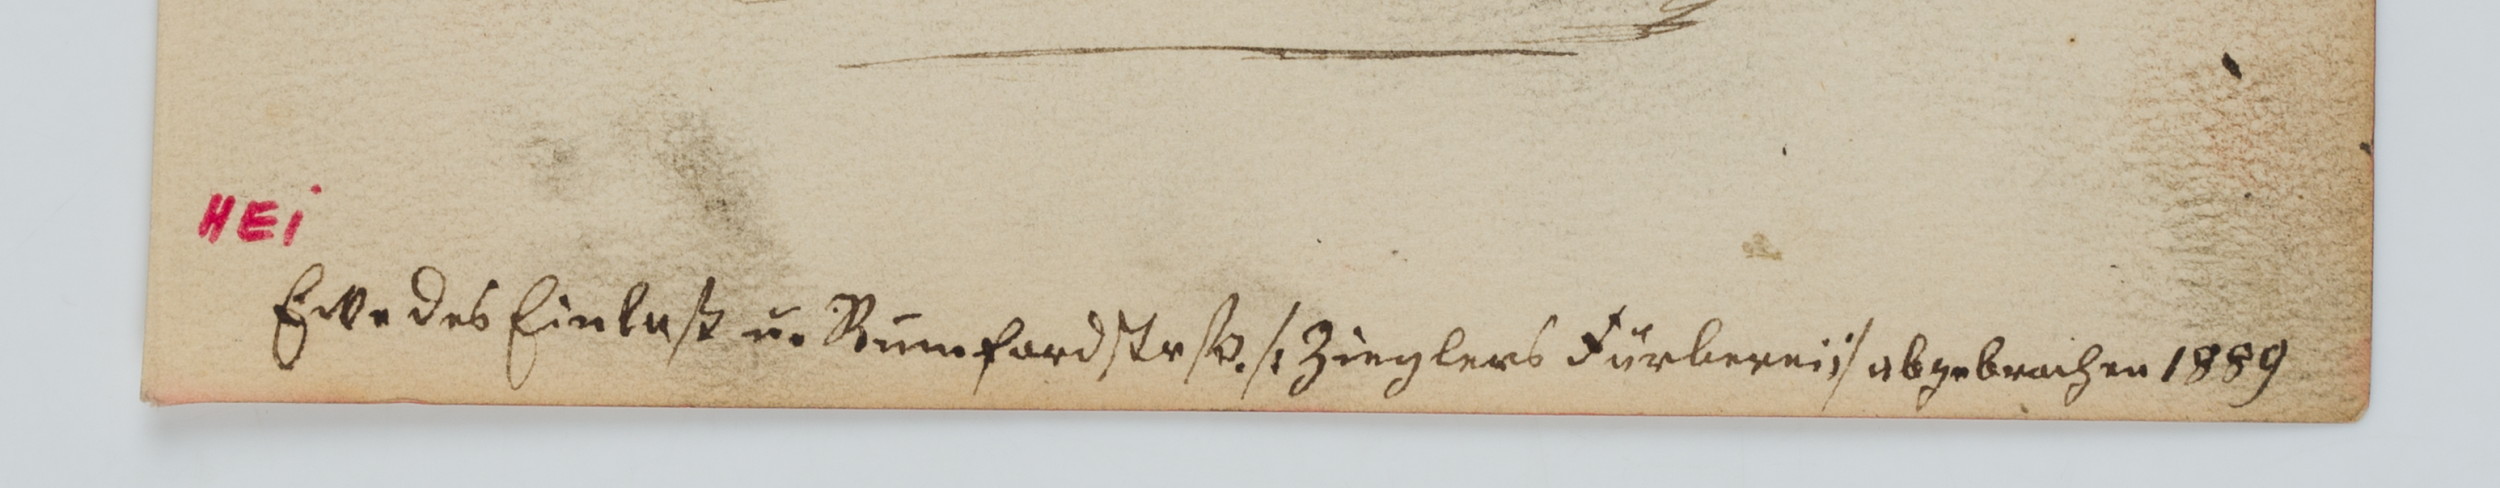 HEi
Ecke des Einlaß u. Rumfordstrß. /: Zieglers Färberei :/ abgebrochen 1889